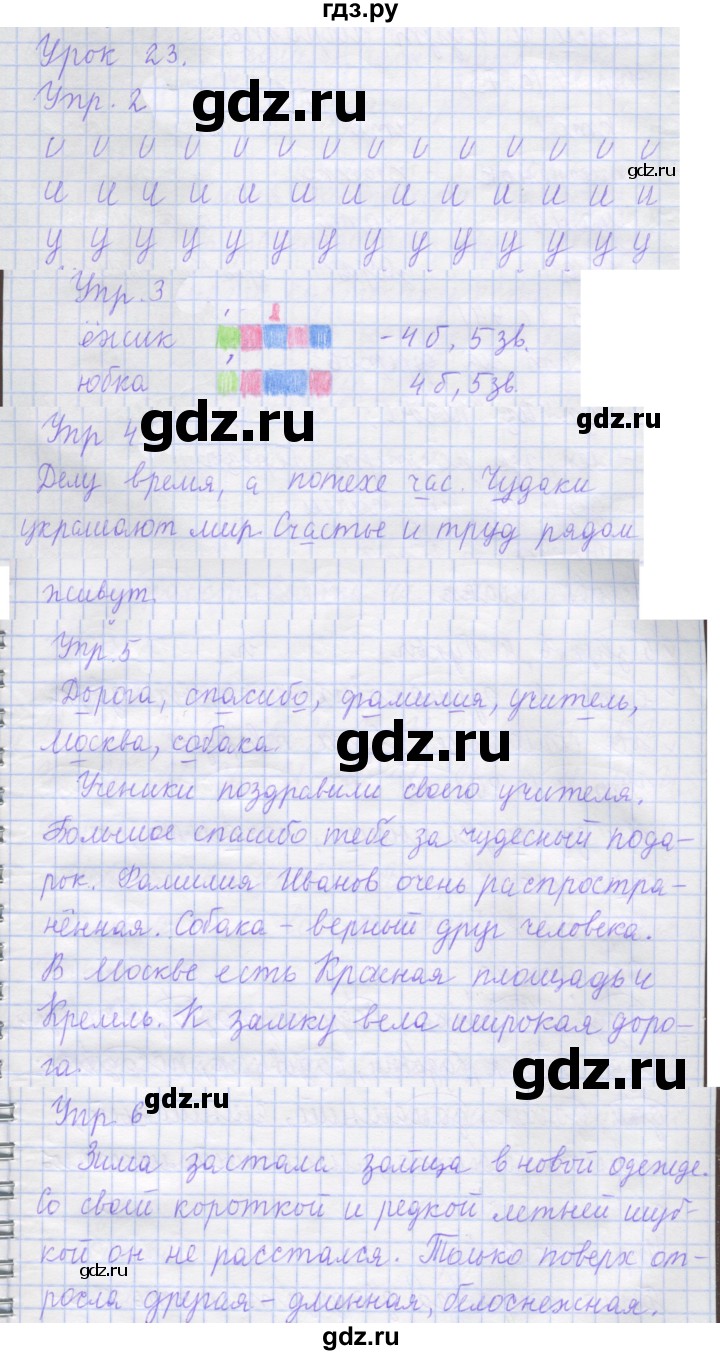 гдз.ру
Урок 23.
Упр. 2
gdz.ru
и и и и и и и и и и и и и и
gdz.ru
и и и и и и и и и и и и и
у у у у у у у у у у у у у у
Упр. 3
ёжик - 4 б, 5 зв.
юбка 4 б, 5 зв.
gdz.ru
Упр 4
gdz.ru
Делу время, а потехе час. Чудаки
украшают мир. Счастье и труд рядом
живут.
Упр. 5
Дорога, спасибо, фамилия, учитель,
Москва, собака.
gdz.ru
Ученики поздравили своего учителя.
Большое спасибо тебе за чудесный пода-
рок. Фамилия Иванов очень распростра-
нённая. Собака - верный друг человека.
В Москве есть Красная площадь и
Кремль. К замку вела широкая доро-
га.
gdz.ru
Упр 6
gdz.ru
Зима застала зайца в новой одежде.
Со своей короткой и редкой летней шуб-
кой он не расстался. Только поверх от-
gdz.ru
росла другая - длинная, белоснежная.
gdz.ru